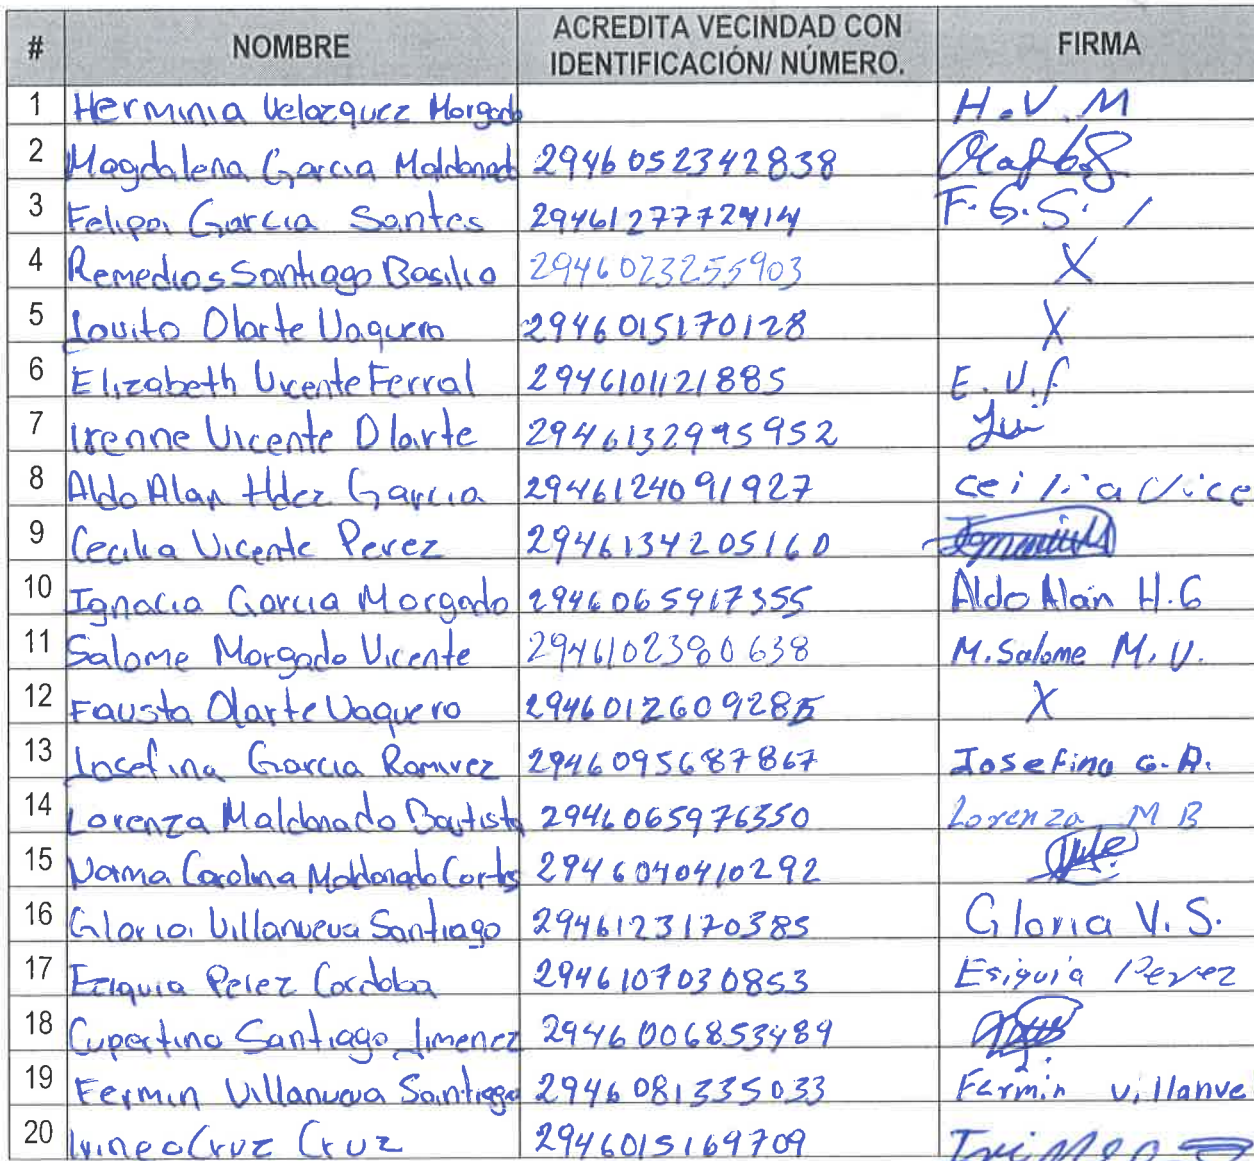 # NOMBRE ACREDITA VECINDAD CON IDENTIFICACIÓN/ NÚMERO. FIRMA
1 Herminia Velazquez Morgado H.V.M
2 Magdalena Garcia Maldonado 2946052342838
3 Felipa Garcia Santes 2946127772414 F.G.S.
4 Remedios Santiago Basilio 2946023255903 X
5 Jovito Olarte Vaquero 2946015170128 X
6 Elizabeth Vicente Ferral 2946101121885 E.V.f
7 Irenne Vicente Olarte 2946132995952
8 Aldo Alan Hdez Garcia 2946124091927 ceilia Vice
9 Cecilia Vicente Perez 2946134205160
10 Ignacia Garcia Morgado 2946065917355 Aldo Alan H.G
11 Salome Morgado Vicente 2946102380638 M. Salome M. V.
12 Fausta Olarte Vaquero 2946012609285 X
13 Josefina Garcia Ramirez 2946095687867 Josefina G. R.
14 Lorenza Maldonado Bautista 2946065976350 Lorenza M B
15 Norma Carolina Maldonado Cortes 2946040410292
16 Gloria Villanueva Santiago 2946123170385 Gloria V. S.
17 Eziquia Perez Cordoba 2946107030853 Esiquia Perez
18 Cupertino Santiago Jimenez 2946006853489
19 Fermin Villanueva Santiago 2946081335033 Fermin villanve
20 Irineo Cruz Cruz 2946015169709